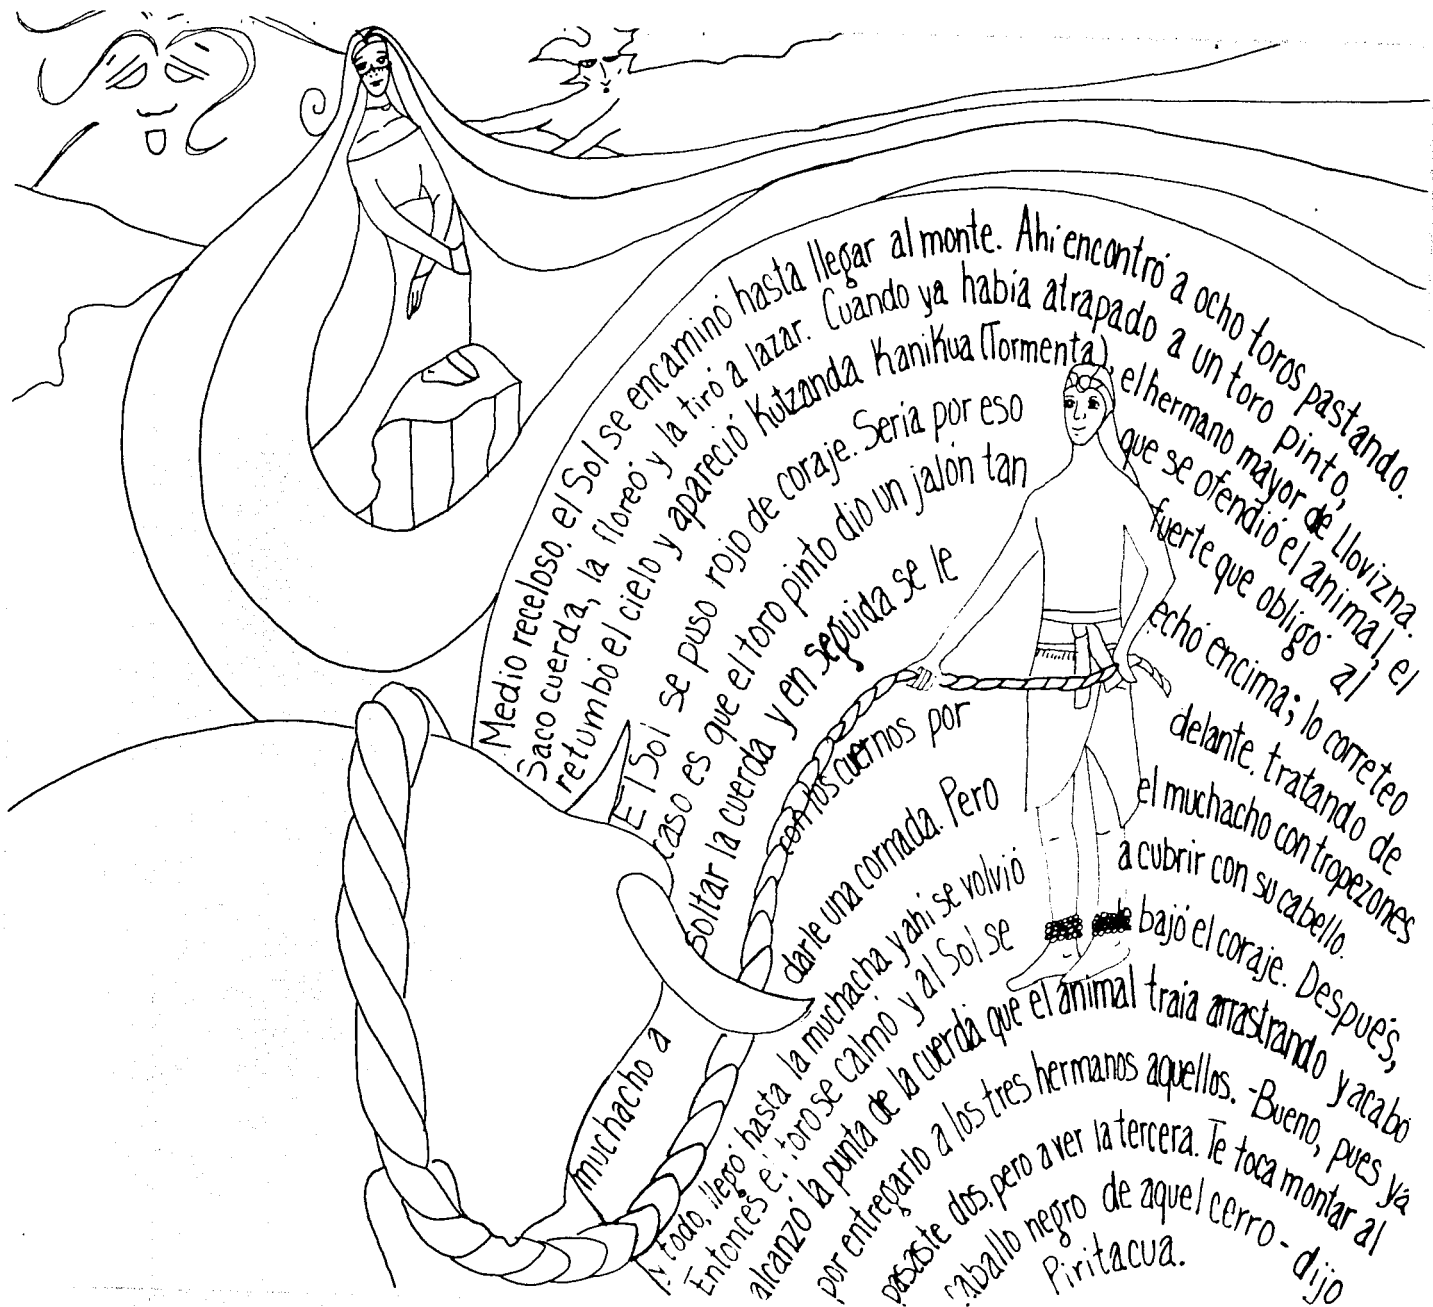 Medio receloso. el Sol se encaminó hasta llegar al monte. Ahi encontró a ocho toros pastando.
Saco cuerda, la floreó y la tiró a lazar. Cuando ya habia atrapado a un toro pinto,
retumbó el cielo y apareció Kutzanda Kanikua (Tormenta), el hermano mayor de Llovizna.
El Sol se puso rojo de coraje. Seria por eso que se ofendió el animal, el
caso es que el toro pinto dio un jalón tan fuerte que obligó al
muchacho a soltar la cuerda y en seguida se le echó encima; lo correteo
con los cuernos por delante. tratando de
darle una cornada. Pero el muchacho con tropezones
y todo, llegó hasta la muchacha y ahi se volvió a cubrir con su cabello.
Entonces el toro se calmó y al Sol se le bajó el coraje. Después,
alcanzó la punta de la cuerda que el animal traia arrastrando y acabó
por entregarlo a los tres hermanos aquellos. -Bueno, pues ya
pasaste dos, pero a ver la tercera. Te toca montar al
caballo negro de aquel cerro - dijo
Piritacua.